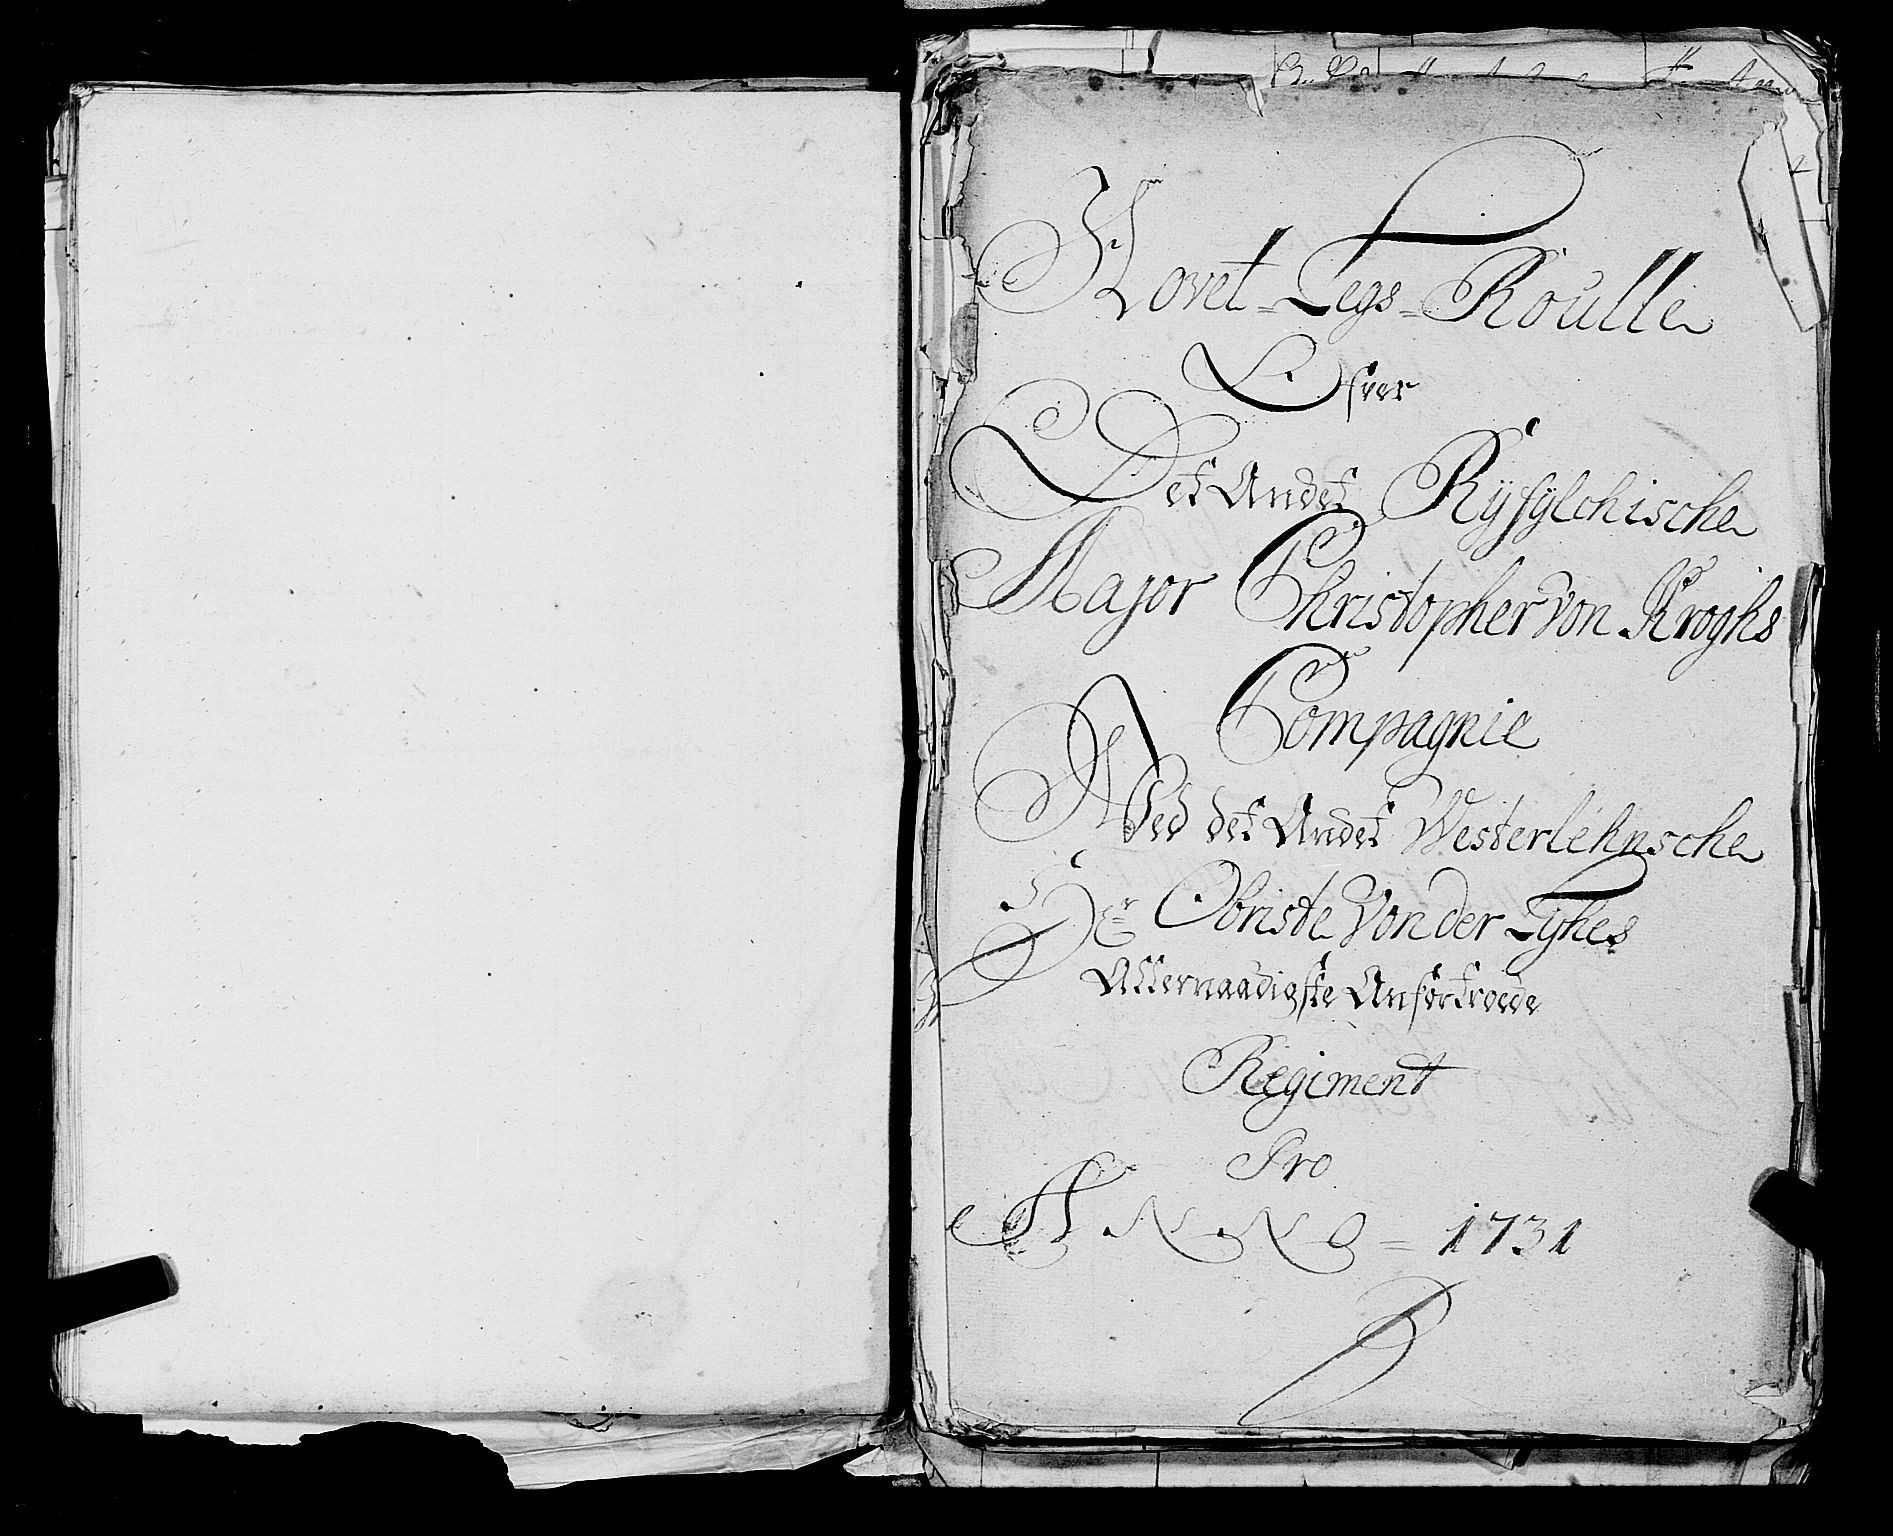 Hovet-Legs-Roulle
Ofver
Det Andet Ryfylchische
Major Christopher von Kroghs
Compagnie
Ved det Andet Westerlehnsche
Hr Obriste Von der Lyhes
Allernaadigste Anfortroede
Regiment
Pro
ANNO = 1731